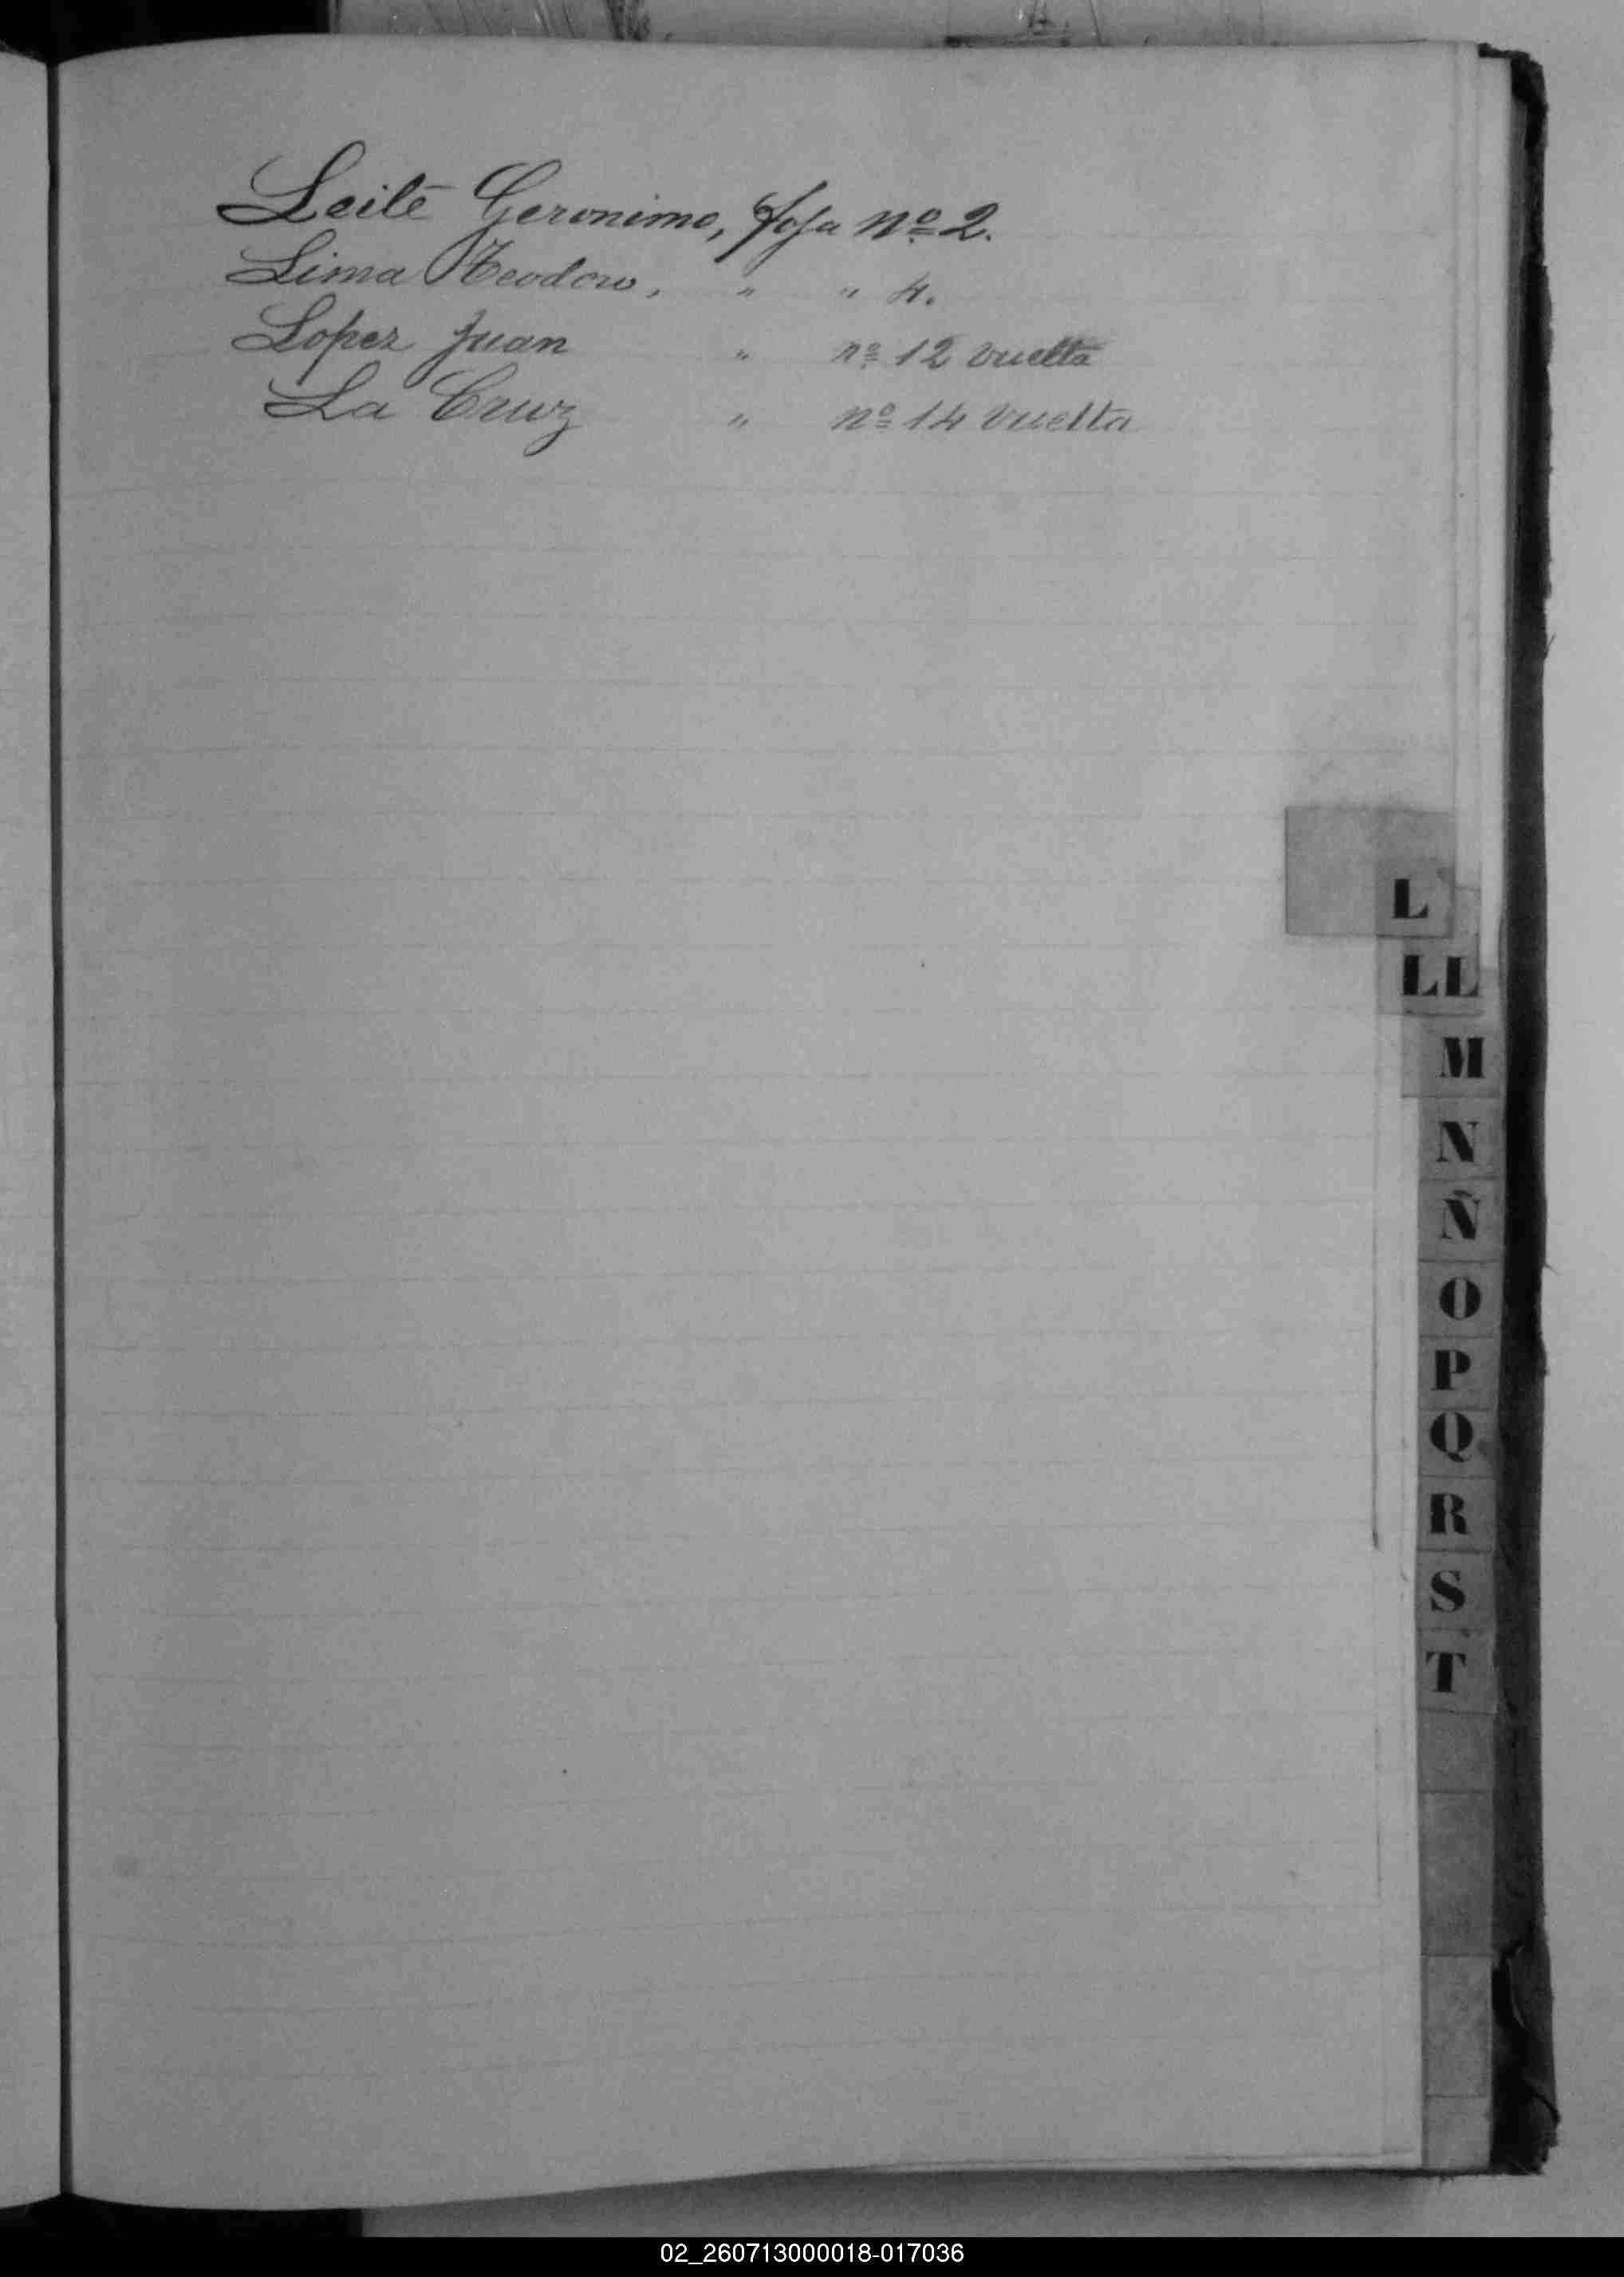 Leite Geronimo, foja nº 2.
Lima Teodoro, " " 4.
Lopez Juan " nº 12 vuelta
La Cruz " nº 14 vuelta
L
LL
M
N
Ñ
O
P
Q
R
S
T
02_260713000018-017036